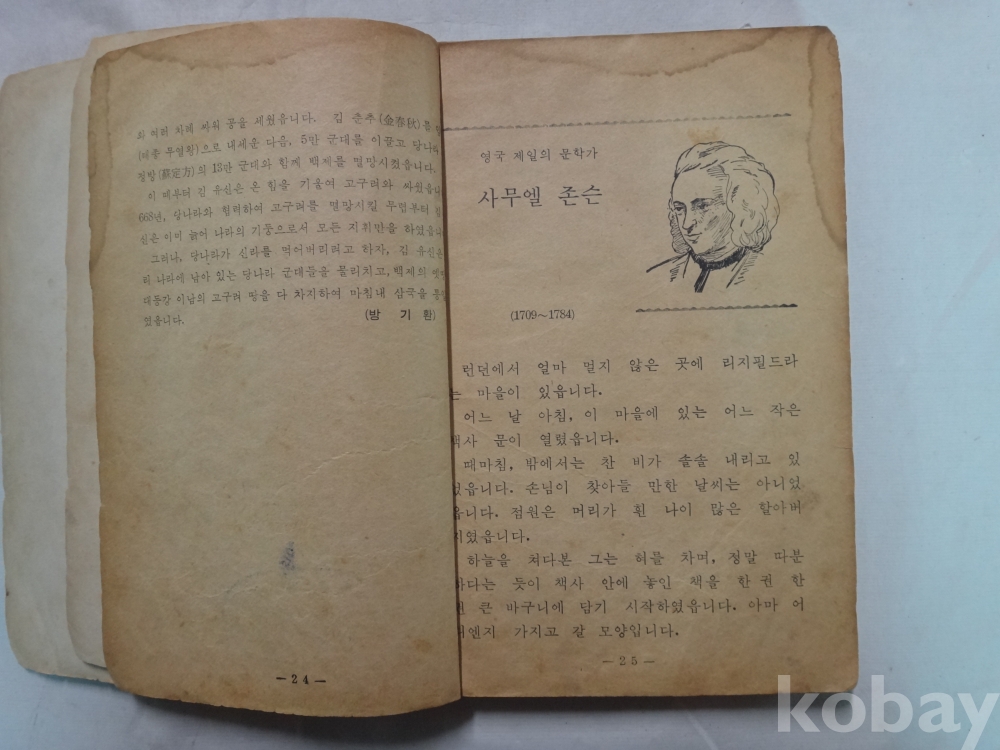 와 여러 차례 싸워 공을 세웠읍니다. 김 춘추(金春秋)를
(태종 무열왕)으로 내세운 다음, 5만 군대를 이끌고 당나라
정방(蘇定方)의 13만 군대와 함께 백제를 멸망시켰읍니다.
이 때부터 김 유신은 온 힘을 기울여 고구려와 싸웠읍니
668년, 당나라와 협력하여 고구려를 멸망시킬 무렵부터 김
신은 이미 늙어 나라의 기둥으로서 모든 지휘만을 하였읍니
그러나, 당나라가 신라를 먹어버리려고 하자, 김 유신은
러 나라에 남아 있는 당나라 군대들을 물리치고, 백제의 옛
대동강 이남의 고구려 땅을 다 차지하여 마침내 삼국을 통일
었읍니다. (방 기 환)
— 24 —
영국 제일의 문학가
사무엘 존슨
(1709~1784)
런던에서 얼마 멀지 않은 곳에 리지필드라
는 마을이 있읍니다.
어느 날 아침, 이 마을에 있는 어느 작은
책사 문이 열렸읍니다.
때마침, 밖에서는 찬 비가 솔솔 내리고 있
었읍니다. 손님이 찾아들 만한 날씨는 아니었
읍니다. 점원은 머리가 흰 나이 많은 할아버
지였읍니다.
하늘을 쳐다본 그는 혀를 차며, 정말 따분
하다는 듯이 책사 안에 놓인 책을 한 권 한
권 큰 바구니에 담기 시작하였읍니다. 아마 어
디엔지 가지고 갈 모양입니다.
— 25 —
kobay